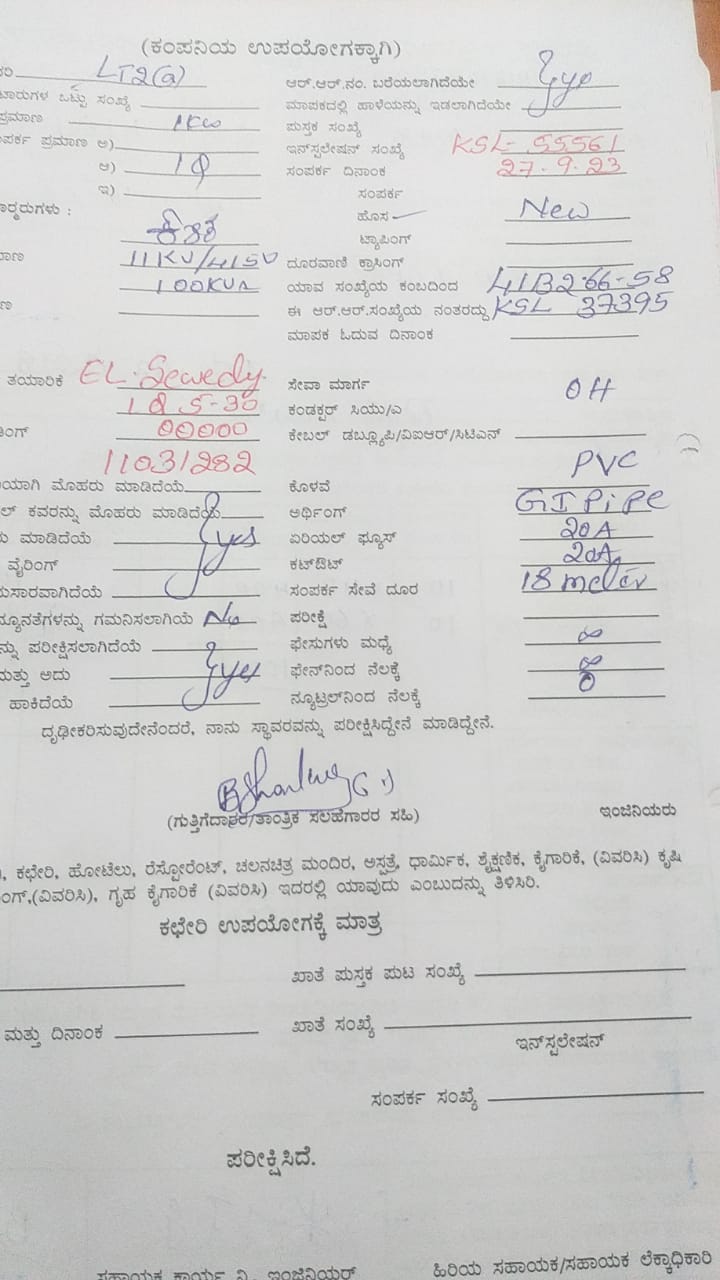 (ಕಂಪನಿಯ ಉಪಯೋಗಕ್ಕಾಗಿ)
LT2(a) ಆರ್.ಆರ್.ನಂ. ಬರೆಯಲಾಗಿದೆಯೇ yes
ಒಟ್ಟು ಸಂಖ್ಯೆ ಮಾಪಕದಲ್ಲಿ ಹಾಳೆಯನ್ನು ಇಡಲಾಗಿದೆಯೇ
ಪ್ರಮಾಣ 1KW ಪುಸ್ತಕ ಸಂಖ್ಯೆ
ಪರ್ಕ ಪ್ರಮಾಣ ಅ) ಇನ್‌ಸ್ಟಲೇಷನ್ ಸಂಖ್ಯೆ KSL-55561
ಆ) 1Φ ಸಂಪರ್ಕ ದಿನಾಂಕ 27-9-23
ಇ) ಸಂಪರ್ಕ
ಹೊಸ New
ಟ್ಯಾಪಿಂಗ್
11KV/415V ದೂರವಾಣಿ ಕ್ರಾಸಿಂಗ್
100KVA ಯಾವ ಸಂಖ್ಯೆಯ ಕಂಬದಿಂದ 41B2-66-58
ಈ ಆರ್.ಆರ್.ಸಂಖ್ಯೆಯ ನಂತರದ್ದು KSL 37395
ಮಾಪಕ ಓದುವ ದಿನಾಂಕ
ತಯಾರಿಕೆ EL-Sewedy ಸೇವಾ ಮಾರ್ಗ OH
1Φ 5-30 ಕಂಡಕ್ಟರ್ ಸಿಯು/ಎ
00000 ಕೇಬಲ್ ಡಬ್ಲ್ಯೂಪಿ/ವಿಐಆರ್/ಸಿಟಿಎಸ್
11031282
ಯಾಗಿ ಮೊಹರು ಮಾಡಿದೆಯೆ ಕೊಳವೆ PVC
ಲ್ ಕವರನ್ನು ಮೊಹರು ಮಾಡಿದೆಯೆ ಅರ್ಥಿಂಗ್ GI PiPe
ಮಾಡಿದೆಯೆ yes ಏರಿಯಲ್ ಫ್ಯೂಸ್ 20A
ವೈರಿಂಗ್ ಕಟ್‌ಔಟ್ 20A
ಸಾರವಾಗಿದೆಯೇ ಸಂಪರ್ಕ ಸೇವೆ ದೂರ 18 meter
ನ್ಯೂನತೆಗಳನ್ನು ಗಮನಿಸಲಾಗಿಯೆ No ಪರೀಕ್ಷೆ
ನ್ನು ಪರೀಕ್ಷಿಸಲಾಗಿದೆಯೆ ಫೇಸುಗಳು ಮಧ್ಯೆ ∞
ಮತ್ತು ಅದು yes ಫೇಸ್‌ನಿಂದ ನೆಲಕ್ಕೆ ∞
ಹಾಕಿದೆಯೆ ನ್ಯೂಟ್ರಲ್‌ನಿಂದ ನೆಲಕ್ಕೆ 0
ದೃಢೀಕರಿಸುವುದೇನೆಂದರೆ, ನಾನು ಸ್ಥಾವರವನ್ನು ಪರೀಕ್ಷಿಸಿದ್ದೇನೆ ಮಾಡಿದ್ದೇನೆ.
(ಗುತ್ತಿಗೆದಾರರ/ತಾಂತ್ರಿಕ ಸಲಹೆಗಾರರ ಸಹಿ) ಇಂಜಿನಿಯರು
, ಕಛೇರಿ, ಹೋಟೆಲು, ರೆಸ್ಟೋರೆಂಟ್, ಚಲನಚಿತ್ರ ಮಂದಿರ, ಅಸ್ಪತ್ರೆ, ಧಾರ್ಮಿಕ, ಶೈಕ್ಷಣಿಕ, ಕೈಗಾರಿಕೆ, (ವಿವರಿಸಿ) ಕೃಷಿ
ಂಗ್,(ವಿವರಿಸಿ), ಗೃಹ ಕೈಗಾರಿಕೆ (ವಿವರಿಸಿ) ಇದರಲ್ಲಿ ಯಾವುದು ಎಂಬುದನ್ನು ತಿಳಿಸಿರಿ.
ಕಛೇರಿ ಉಪಯೋಗಕ್ಕೆ ಮಾತ್ರ
ಖಾತೆ ಪುಸ್ತಕ ಪುಟ ಸಂಖ್ಯೆ
ಮತ್ತು ದಿನಾಂಕ ಖಾತೆ ಸಂಖ್ಯೆ
ಇನ್‌ಸ್ಟಲೇಷನ್
ಸಂಪರ್ಕ ಸಂಖ್ಯೆ
ಪರೀಕ್ಷಿಸಿದೆ.
ಸಹಾಯಕ ಕಾರ್ಯ ನಿ. ಇಂಜಿನಿಯರ್ ಹಿರಿಯ ಸಹಾಯಕ/ಸಹಾಯಕ ಲೆಕ್ಕಾಧಿಕಾರಿ